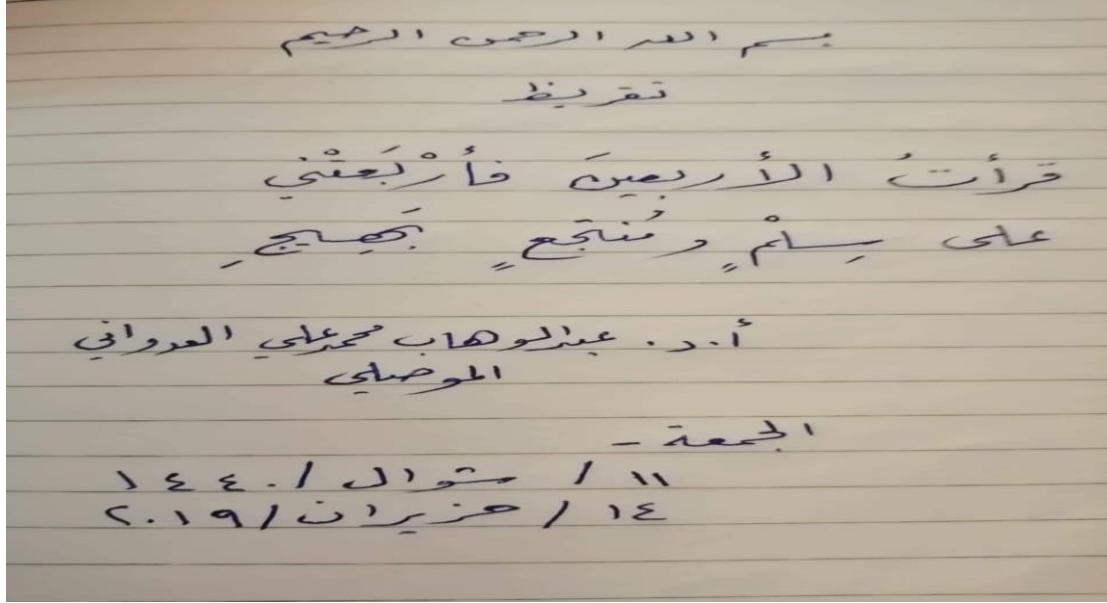 بسم الله الرحمن الرحيم
تقريظ
قرأتُ الأربعينَ فأرْبَعَتْني
على سِلْمٍ ومُنتجعٍ بَهيجِ
أ.د. عبدالوهاب محمد علي العدواني
الموصلي
الجمعة -
١١ / شوال / ١٤٤٠
١٤ / حزيران / ٢٠١٩